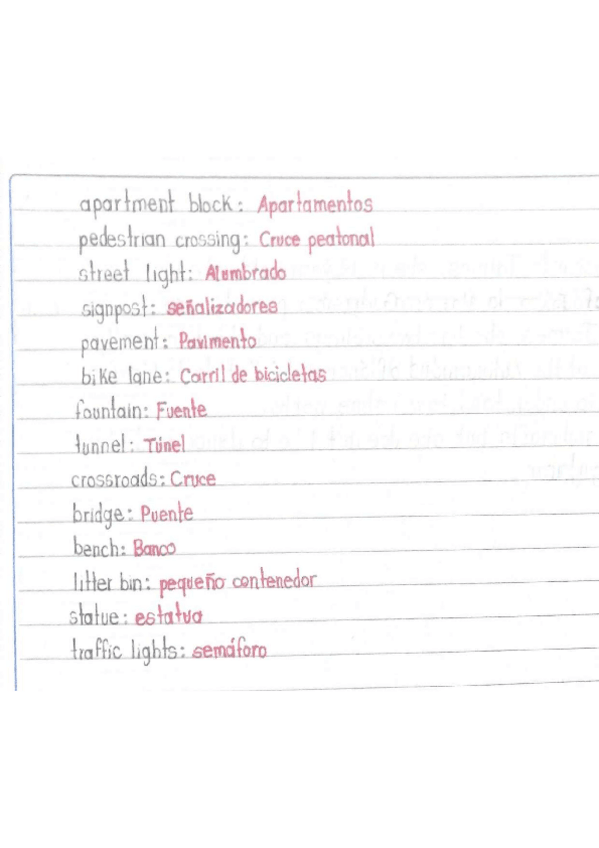 apartment block: Apartamentos
pedestrian crossing: Cruce peatonal
street light: Alumbrado
signpost: señalizadores
pavement: Pavimento
bike lane: Carril de bicicletas
fountain: Fuente
tunnel: Túnel
crossroads: Cruce
bridge: Puente
bench: Banco
litter bin: pequeño contenedor
statue: estatua
traffic lights: semáforo